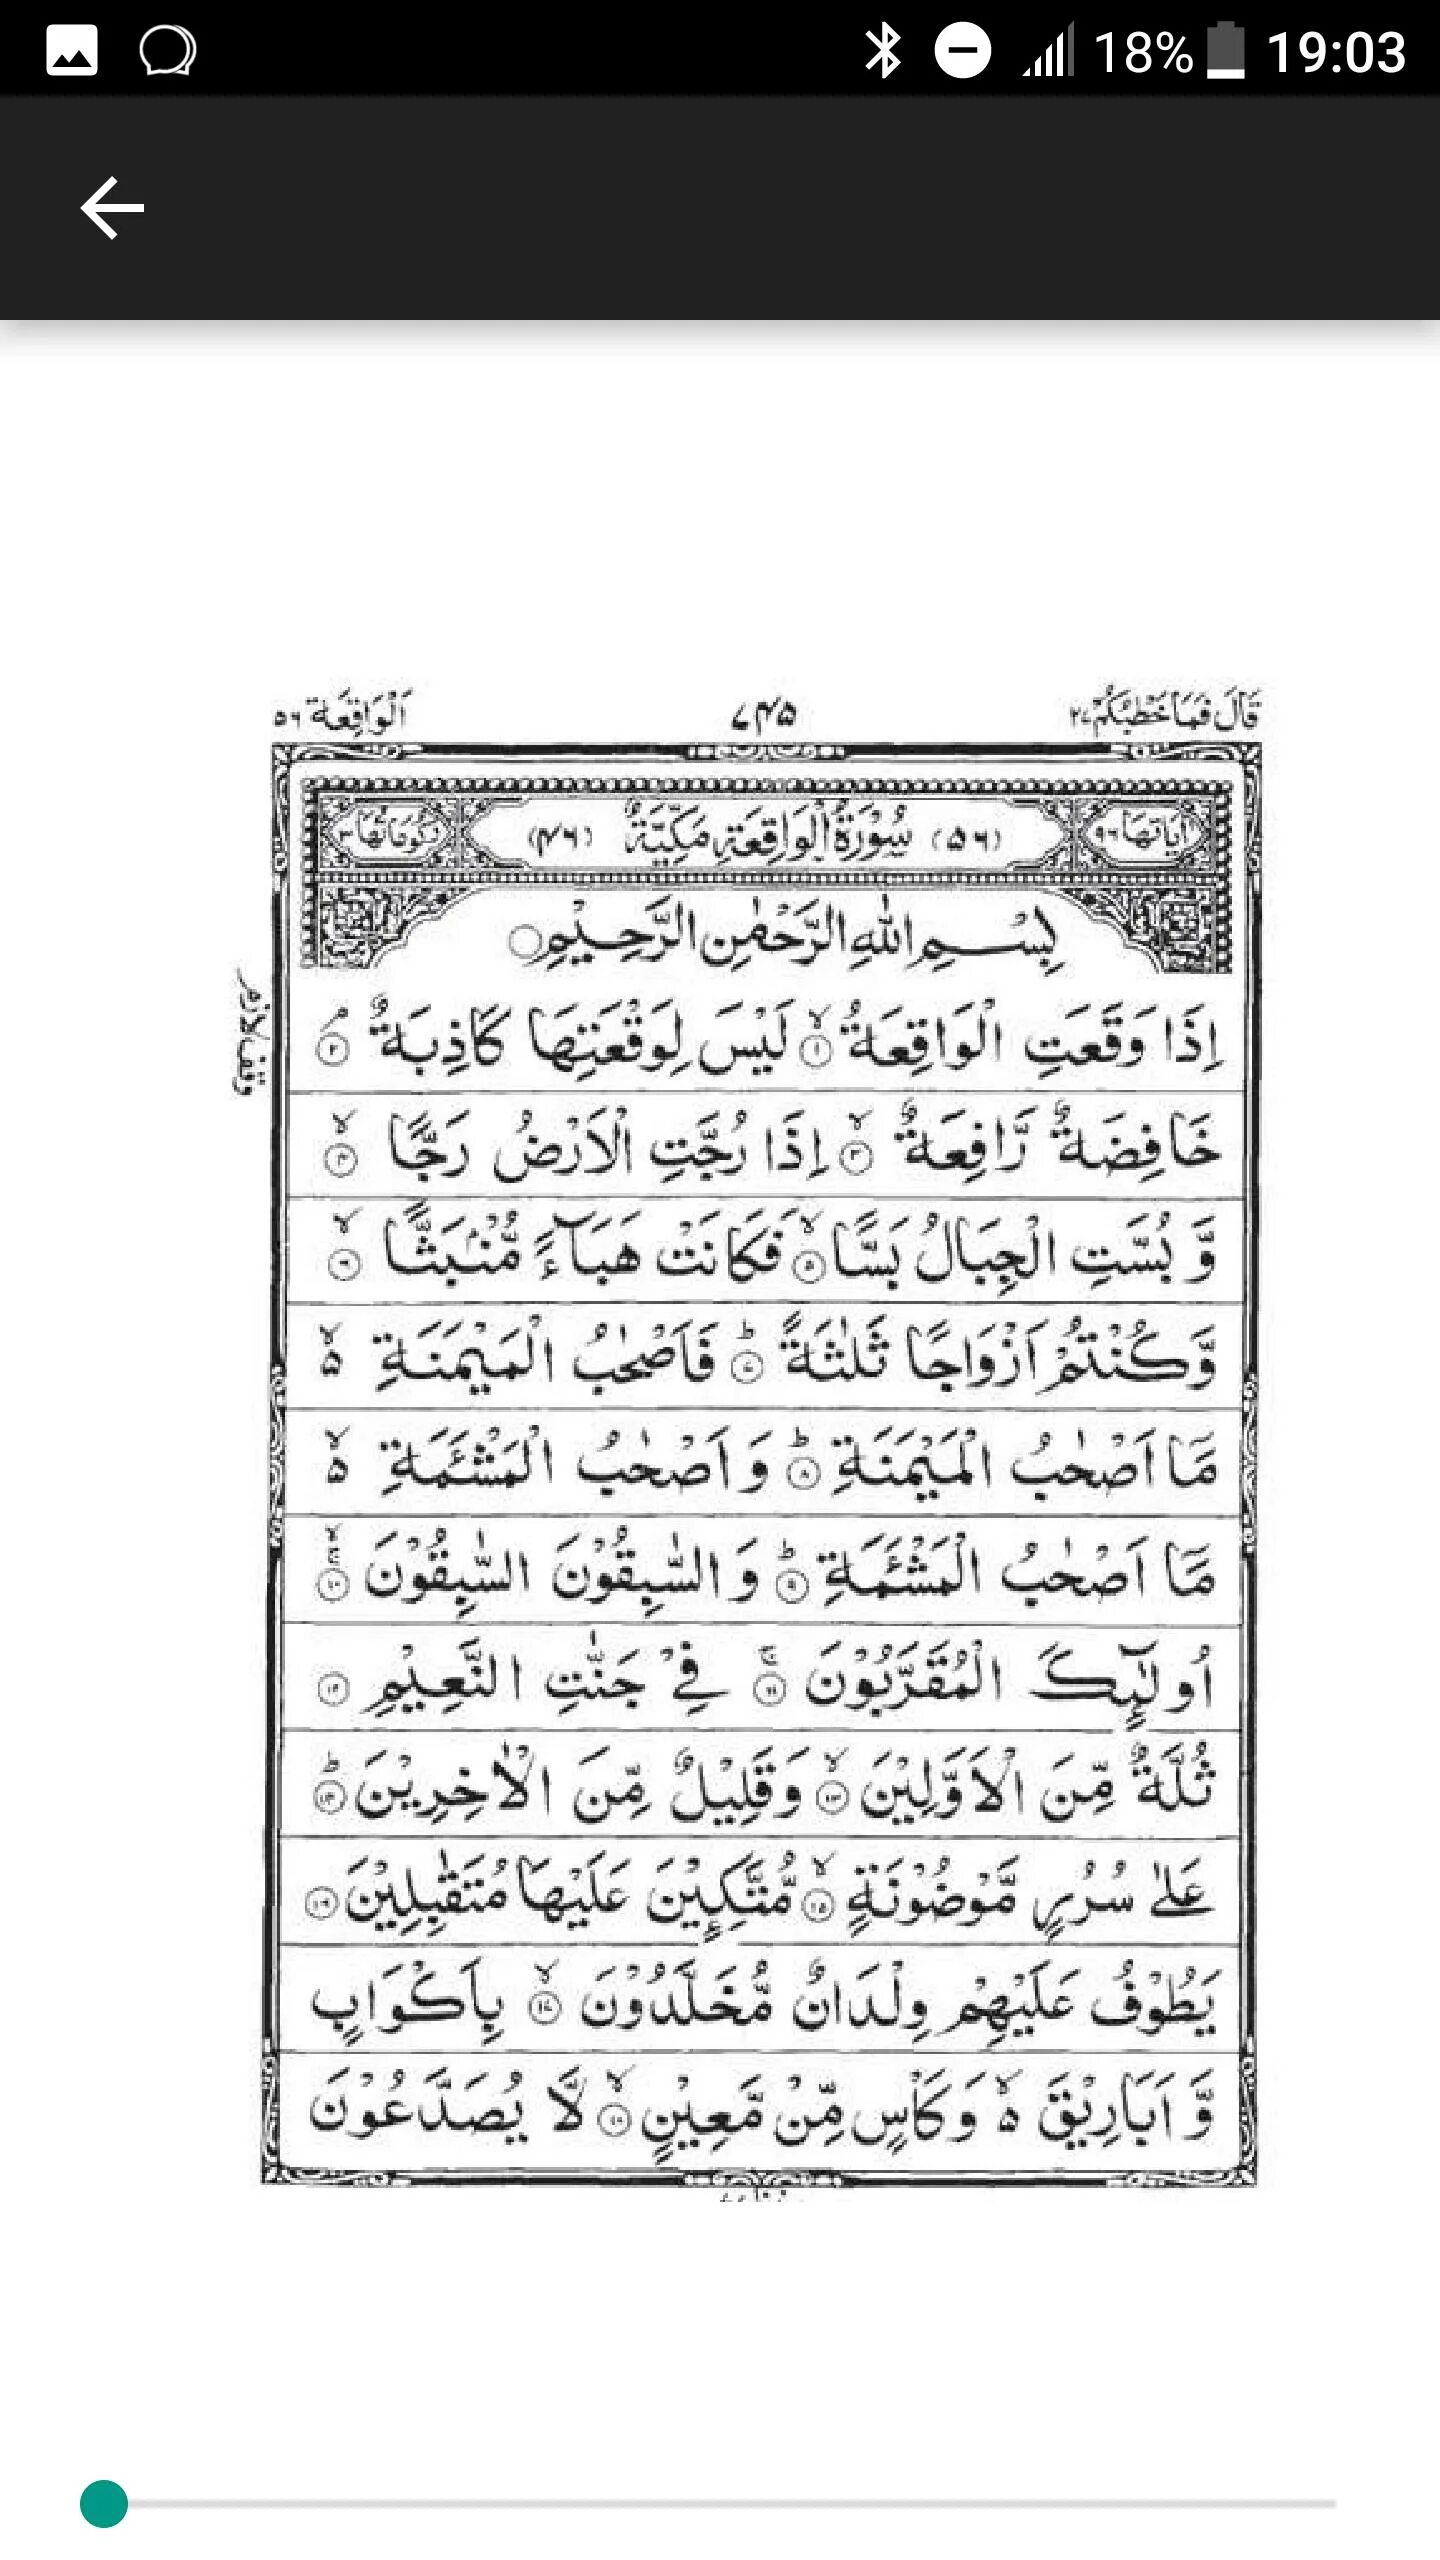 18% 19:03
قَالَ فَمَا خَطْبُكُمْ ٢٧
٧٤٥
اَلْوَاقِعَة ٥٦
اٰيَاتُهَا ٩٦
(٥٦) سُوْرَةُ الْوَاقِعَةِ مَكِّيَّةٌ (٤٦)
رُكُوْعَاتُهَا ٣
بِسْمِ اللّٰهِ الرَّحْمٰنِ الرَّحِيْمِ
اِذَا وَقَعَتِ الْوَاقِعَةُ ۙ‏ ١ لَيْسَ لِوَقْعَتِهَا كَاذِبَةٌ ۘ‏ ٢
وقف لازم
خَافِضَةٌ رَّافِعَةٌ ۙ‏ ٣ اِذَا رُجَّتِ الْاَرْضُ رَجًّا ۙ‏ ٤
وَّ بُسَّتِ الْجِبَالُ بَسًّا ۙ‏ ٥ فَكَانَتْ هَبَآءً مُّنْۢبَثًّا ۙ‏ ٦
وَّكُنْتُمْ اَزْوَاجًا ثَلٰثَةً ؕ‏ ٧ فَاَصْحٰبُ الْمَيْمَنَةِ ۙ۬ ٥
مَاۤ اَصْحٰبُ الْمَيْمَنَةِ ؕ‏ ٨ وَ اَصْحٰبُ الْمَشْـَٔمَةِ ۙ ٥
مَاۤ اَصْحٰبُ الْمَشْـَٔمَةِ ؕ‏ ٩ وَ السّٰبِقُوْنَ السّٰبِقُوْنَ ۚۙ‏ ١٠
اُولٰٓئِكَ الْمُقَرَّبُوْنَ ۚ‏ ١١ فِيْ جَنّٰتِ النَّعِيْمِ ١٢
ثُلَّةٌ مِّنَ الْاَوَّلِيْنَ ۙ‏ ١٣ وَقَلِيْلٌ مِّنَ الْاٰخِرِيْنَ ؕ‏ ١٤
عَلٰى سُرُرٍ مَّوْضُوْنَةٍ ۙ‏ ١٥ مُّتَّكِـِٕيْنَ عَلَيْهَا مُتَقٰبِلِيْنَ ١٦
يَطُوْفُ عَلَيْهِمْ وِلْدَانٌ مُّخَلَّدُوْنَ ۙ‏ ١٧ بِاَكْوَابٍ
وَّ اَبَارِيْقَ ۙ ٥ وَكَاْسٍ مِّنْ مَّعِيْنٍ ۙ‏ ١٨ لَّا يُصَدَّعُوْنَ